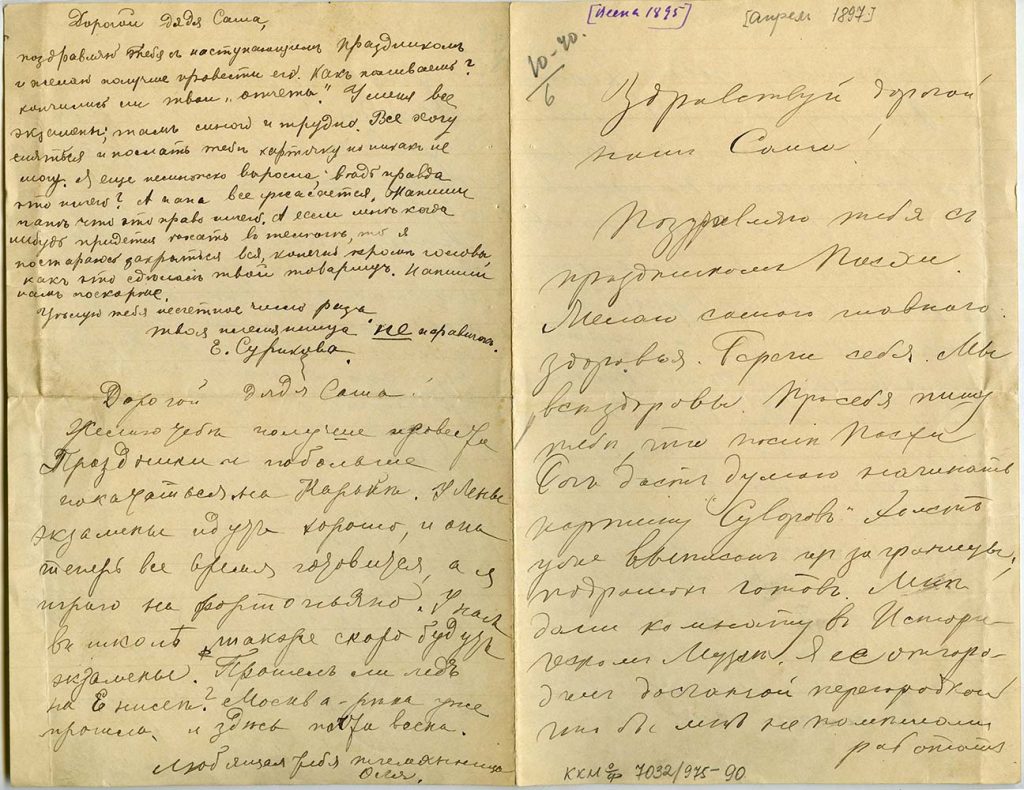 Дорогой дядя Саша,
поздравляю тебя съ наступающимъ праздникомъ
и желаю получше провести его. Какъ поживаешь?
кончились ли твои „отчеты"? У меня все
экзамены; такъ много и трудно. Все хочу
сняться и послать тебѣ карточку но никакъ не
могу. Я еще немножко выросла: вѣдь правда
это ничего? А папа все ужасается. Напиши
папѣ что это право ничего. А если мнѣ когда
нибудь придется
постараюсь закрыться вся, конечно кромѣ головы,
какъ это сдѣлалъ твой товарищъ. Напиши
намъ поскорѣе.
Цѣлую тебя несчетное число разъ.
твоя племянница не
Е. Сурикова.
Дорогой дядя Саша!
Желаю тебѣ получше провести
Праздники и побольше
покататься на Карькѣ. У Лены
экзамены идутъ хорошо, и она
теперь все время готовится, а я
играю на фортопьяно. У насъ
въ школѣ также скоро будутъ
экзамены. Прошелъ ли ледъ
на Енисеѣ? Москва-рѣка уже
прошла, и здѣсь весна.
Любящая тебя племянница
Оля.
[Весна 1895]
[Апрель 1897]
10-40.
6
Здравствуй дорогой
нашъ Саша!
Поздравляю тебя съ
праздникомъ Пасхи.
Желаю самого главного
здоровья. Береги себя. Мы
всѣ здоровы. Про себя пишу
тебѣ, что послѣ Пасхи
Богъ дастъ думаю начинать
картину „Суворовъ" Холстъ
уже выписалъ изъ заграницы,
подрамокъ готовъ. Мнѣ
дали комнату въ Истори-
ческомъ Музеѣ. Я ее отгоро-
дилъ досчатой перегородкой
что бы мнѣ не помѣшали
работать
ККМ о/ф 7032/975-90